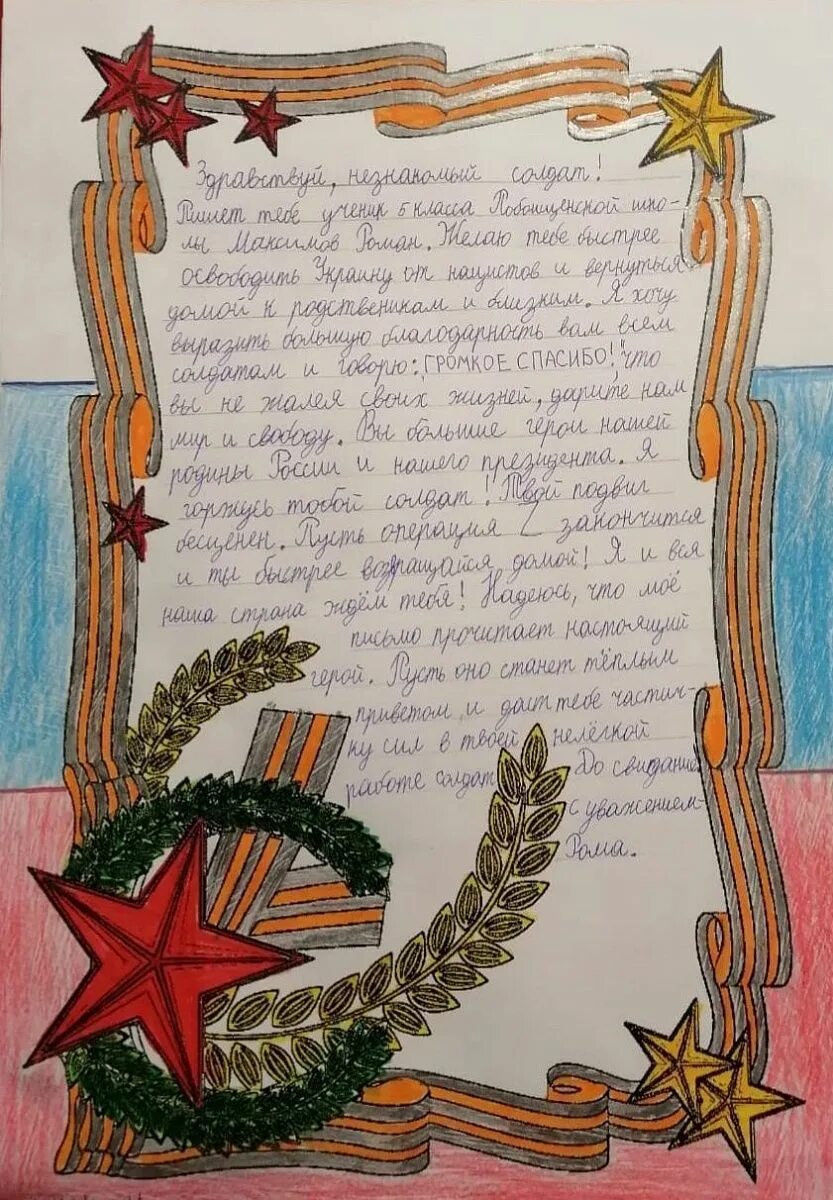 Здравствуй, незнакомый солдат!
Пишет тебе ученик 5 класса Побоищенской шко-
лы Максимов Роман. Желаю тебе быстрее
освободить Украину от нацистов и вернуться
домой к родственикам и близким. Я хочу
выразить большую благодарность вам всем
солдатам и говорю: "ГРОМКОЕ СПАСИБО!" что
вы не жалея своих жизней, дарите нам
мир и свободу. Вы большие герои нашей
родины России и нашего президента. Я
горжусь тобой солдат! Твой подвиг
бесценен. Пусть операция Z закончится
и ты быстрее возвращайся домой! Я и вся
наша страна ждём тебя! Надеюсь, что моё
письмо прочитает настоящий
герой. Пусть оно станет тёплым
приветом и даст тебе частич-
ку сил в твоей нелёгкой
работе солдат До свидание
с уважением-
Рома.